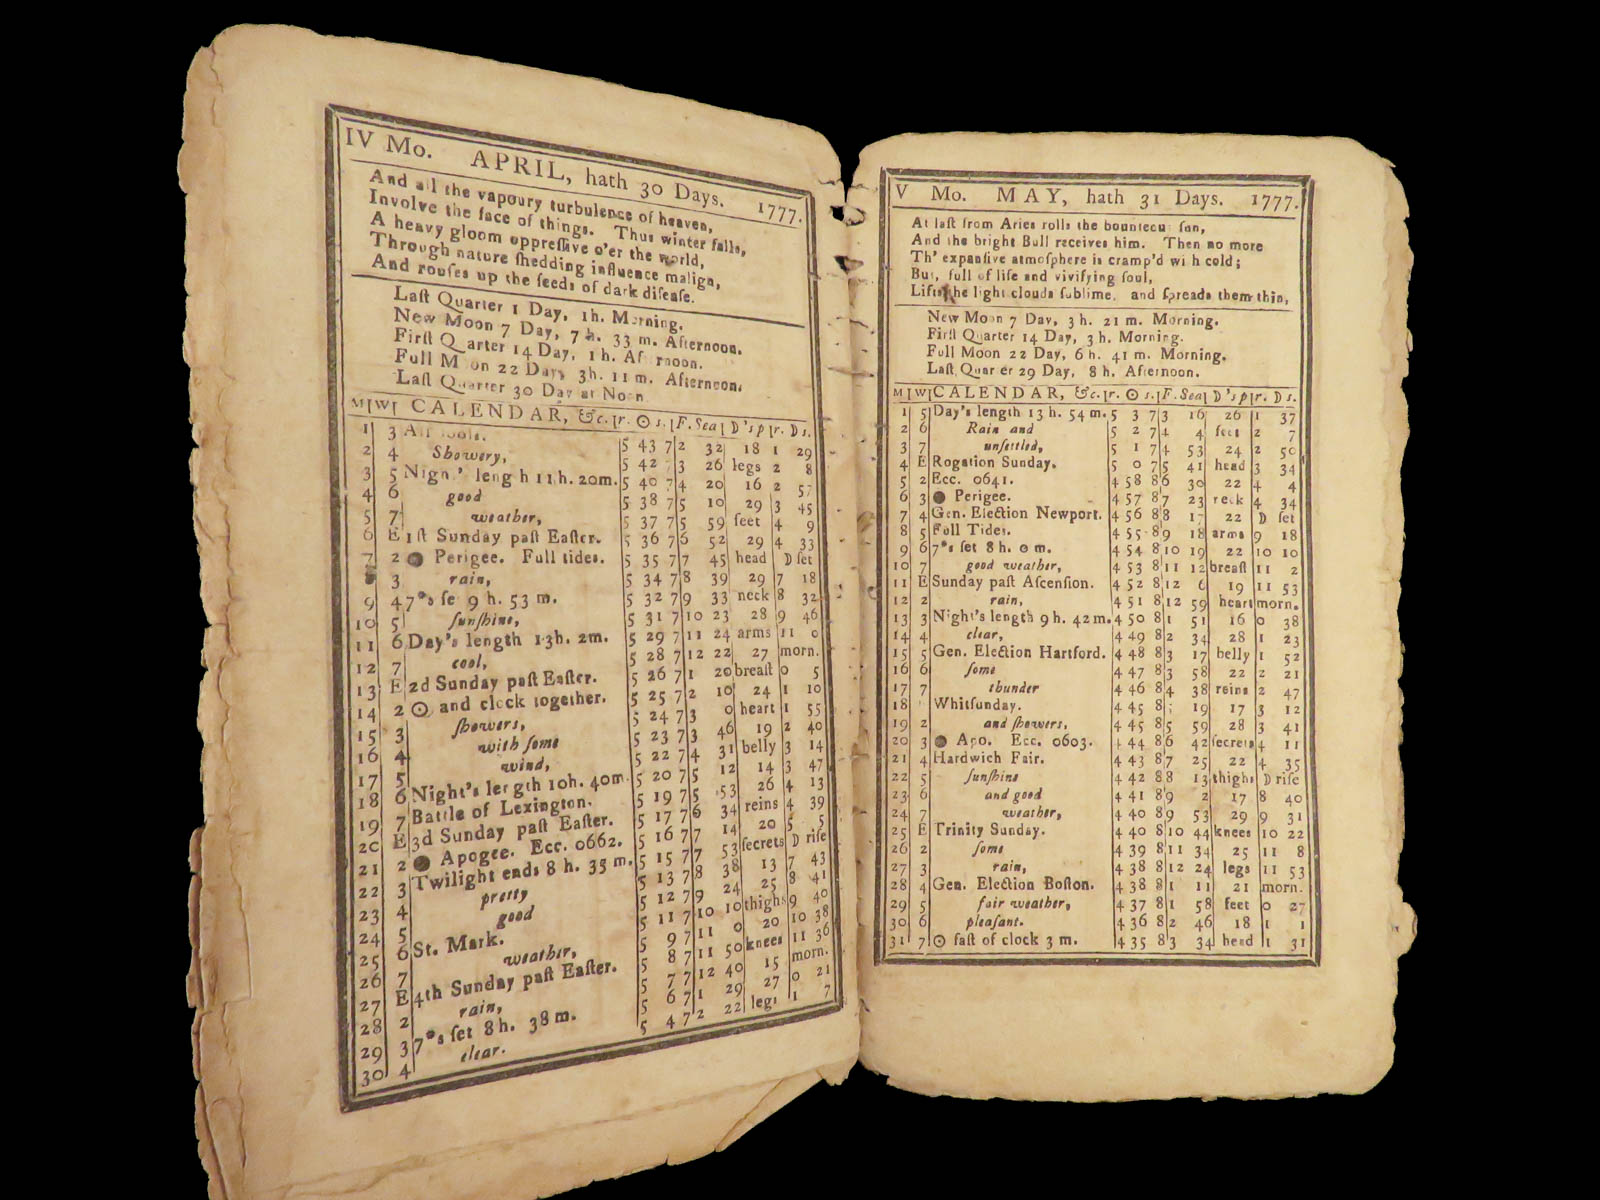 IV Mo. APRIL, hath 30 Days. 1777.
And all the vapoury turbulence of heaven,
Involve the face of things. Thus winter falls,
A heavy gloom oppreſſive o'er the world,
Through nature ſhedding influence malign,
And rouſes up the ſeeds of dark diſeaſe.
Laſt Quarter 1 Day, 1h. Morning.
New Moon 7 Day, 7 h. 33 m. Afternoon.
Firſt Quarter 14 Day, 1 h. Afternoon.
Full Moon 22 Day, 3h. 11 m. Afternoon.
Laſt Quarter 30 Day at Noon
M|W| CALENDAR, &c. |r. ☉ s. |F. Sea| D's p |r. D s.
1 3 All Fools. 5 43 7 2 32 18 1 29
2 4 Showery, 5 42 7 3 26 legs 2 8
3 5 Night's length 11h. 20m. 5 40 7 4 20 16 2 57
4 6 good 5 38 7 5 10 29 3 45
5 7 weather, 5 37 7 5 59 feet 4 9
6 E 1ſt Sunday paſt Eaſter. 5 36 7 6 52 29 4 33
7 2 ● Perigee. Full tides. 5 35 7 7 45 head D ſet
8 3 rain, 5 34 7 8 39 29 7 18
9 4 7*s ſe 9 h. 53 m. 5 32 7 9 33 neck 8 32
10 5 ſunſhine, 5 31 7 10 23 28 9 46
11 6 Day's length 13h. 2m. 5 29 7 11 24 arms 11 0
12 7 cool, 5 28 7 12 22 27 morn.
13 E 2d Sunday paſt Eaſter. 5 26 7 1 20 breaſt 0 5
14 2 ☉ and clock together. 5 25 7 2 10 24 1 10
15 3 ſhowers, 5 24 7 3 0 heart 1 55
16 4 with ſome 5 23 7 3 46 19 2 40
17 5 wind, 5 22 7 4 31 belly 3 14
18 6 Night's length 10h. 40m. 5 20 7 5 12 14 3 47
19 7 Battle of Lexington. 5 19 7 5 53 26 4 13
20 E 3d Sunday paſt Eaſter. 5 17 7 6 34 reins 4 39
21 2 ● Apogee. Ecc. 0662. 5 16 7 7 14 20 5 5
22 3 Twilight ends 8 h. 35 m. 5 15 7 7 53 ſecrets D riſe
23 4 pretty 5 13 7 8 38 13 7 43
24 5 good 5 12 7 9 24 25 8 41
25 6 St. Mark. 5 11 7 10 10 thighs 9 40
26 7 weather, 5 9 7 11 0 20 10 38
27 E 4th Sunday paſt Eaſter. 5 8 7 11 50 knees 11 36
28 2 rain, 5 7 7 12 40 15 morn.
29 3 7*s ſet 8 h. 38 m. 5 6 7 1 29 27 0 21
30 4 clear. 5 4 7 2 22 legs 1 7
V Mo. MAY, hath 31 Days. 1777.
At laſt from Aries rolls the bounteou ſun,
And the bright Bull receives him. Then no more
Th' expanſive atmoſphere is cramp'd wi h cold;
But, full of life and vivifying ſoul,
Lifts the light clouds ſublime, and ſpreads them thin,
New Moon 7 Day, 3 h. 21 m. Morning.
Firſt Quarter 14 Day, 3 h. Morning.
Full Moon 22 Day, 6 h. 41 m. Morning.
Laſt Quar er 29 Day, 8 h. Afternoon.
M|W|CALENDAR, &c. |r. ☉ s. |F. Sea| D's p |r. D s.
1 5 Day's length 13 h. 54 m. 5 3 7 3 16 26 1 37
2 6 Rain and 5 2 7 4 4 feet 2 7
3 7 unſettled, 5 1 7 4 53 24 2 50
4 E Rogation Sunday. 5 0 7 5 41 head 3 34
5 2 Ecc. 0641. 4 58 8 6 30 22 4 4
6 3 ● Perigee. 4 57 8 7 23 neck 4 34
7 4 Gen. Election Newport. 4 56 8 8 17 22 D ſet
8 5 Full Tides. 4 55 8 9 18 arms 9 18
9 6 7*s ſet 8 h. 0 m. 4 54 8 10 19 22 10 10
10 7 good weather, 4 53 8 11 12 breaſt 11 2
11 E Sunday paſt Aſcenſion. 4 52 8 12 6 19 11 53
12 2 rain, 4 51 8 12 59 heart morn.
13 3 Night's length 9 h. 42 m. 4 50 8 1 51 16 0 38
14 4 clear, 4 49 8 2 34 28 1 23
15 5 Gen. Election Hartford. 4 48 8 3 17 belly 1 52
16 6 ſome 4 47 8 3 58 22 2 21
17 7 thunder 4 46 8 4 38 reins 2 47
18 Whitſunday. 4 45 8 5 19 17 3 12
19 2 and ſhowers, 4 45 8 5 59 28 3 41
20 3 ● Apo. Ecc. 0603. 4 44 8 6 42 ſecrets 4 11
21 4 Hardwich Fair. 4 43 8 7 25 22 4 35
22 5 ſunſhine 4 42 8 8 13 thighs D riſe
23 6 and good 4 41 8 9 2 17 8 40
24 7 weather, 4 40 8 9 53 29 9 31
25 E Trinity Sunday. 4 40 8 10 44 knees 10 22
26 2 ſome 4 39 8 11 34 25 11 8
27 3 rain, 4 38 8 12 24 legs 11 53
28 4 Gen. Election Boſton. 4 38 8 1 11 21 morn.
29 5 fair weather, 4 37 8 1 58 feet 0 27
30 6 pleaſant. 4 36 8 2 46 18 1 1
31 7 ☉ faſt of clock 3 m. 4 35 8 3 34 head 1 31